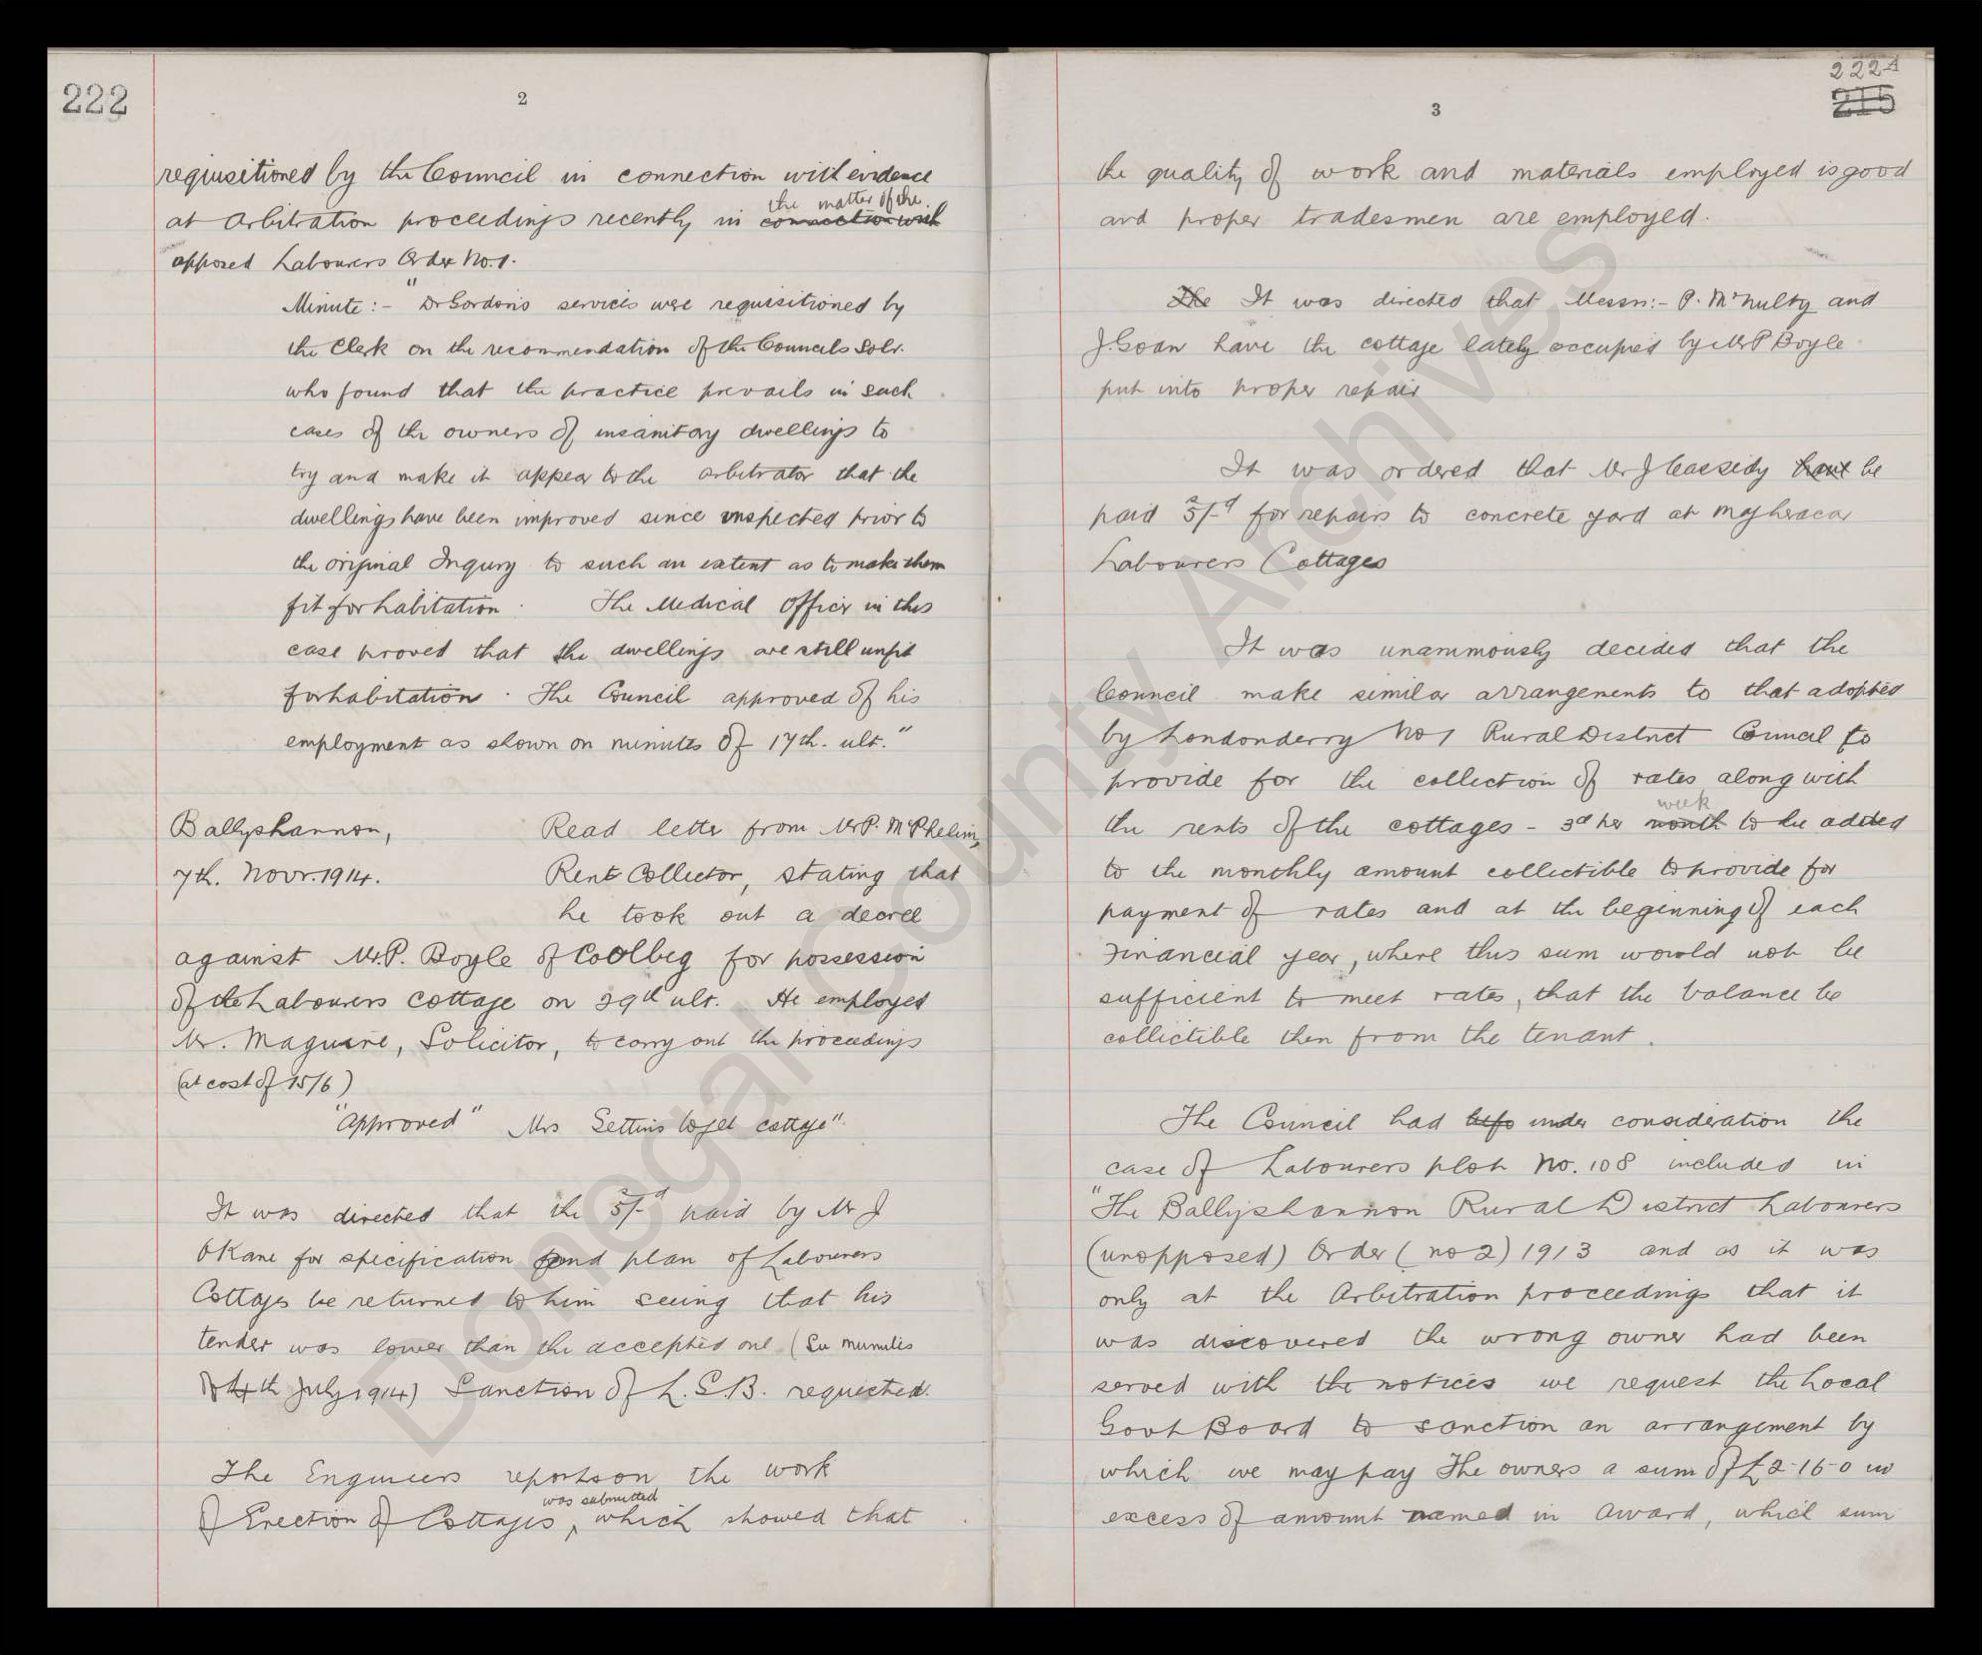 222
2
requisitioned by the Council in connection with evidence
the matter of the
at Arbitration proceedings recently in connection with
opposed Labourers Order No. 1.
Minute:- "Dr Gordon's services were requisitioned by
the Clerk on the recommendation of the Councils Solr.
who found that the practice prevails in such
cases of the owners of insanitary dwellings to
try and make it appear to the arbitrator that the
dwellings have been improved since inspected prior to
the original Inqury to such an extent as to make them
fit for habitation. The Medical Officer in this
case proved that the dwellings are still unfit
for habitation. The Council approved of his
employment as shown on minutes of 17th. ult."
Ballyshannon, Read letter from Mr P. McPhelim,
7th. Novr. 1914. Rent Collector, stating that
he took out a decree
against Mr. P. Boyle of Coolbeg for possession
of the Labourers cottage on 29th ult. He employed
Mr. Maguire, Solicitor, to carry out the proceedings
(at cost of 15/6)
"Approved" Mrs to get cottage".
It was directed that the 5/- paid by Mr J
O'Kane for specification and plan of Labourers
Cottages be returned to him seeing that his
tender was lower than the accepted one (See minutes
of 4th July 1914) Sanction of L.G.B. requested.
The Engineers reports on the work
was submitted
of Erection of Cottages, which showed that
222A
215
3
the quality of work and materials employed is good
and proper tradesmen are employed.
The It was directed that Messrs:- P. McNulty and
J. Goan have the cottage lately occupied by Mr P Boyle
put into proper repair
It was ordered that Mr J Cassedy have be
paid 5/- for repairs to concrete yard at Magheracar
Labourers Cottages
It was unanimously decided that the
Council make similar arrangements to that adopted
by Londonderry No 1 Rural District Council to
provide for the collection of rates along with
week
the rents of the cottages - 3d per month to be added
to the monthly amount collectible to provide for
payment of rates and at the beginning of each
Financial year, where this sum would not be
sufficient to meet rates, that the balance be
collectible then from the tenant.
The Council had befo under consideration the
case of Labourers plot No. 108 included in
"The Ballyshannon Rural District Labourers
(unopposed) Order (no 2) 1913 and as it was
only at the Arbitration proceedings that it
was discovered the wrong owner had been
served with the notices we request the Local
Govt Board to sanction an arrangement by
which we may pay The owners a sum of £2-16-0 in
excess of amount named in Award, which sum
Donegal County Archives